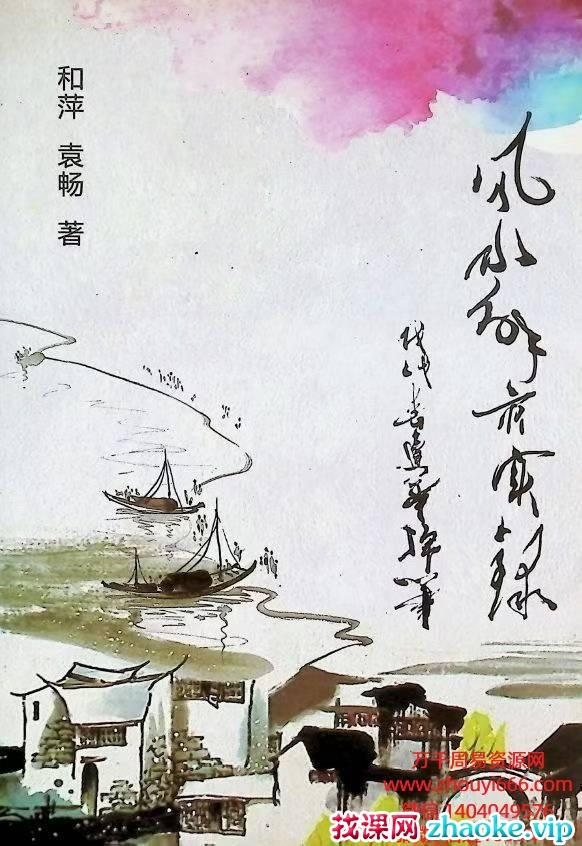 和萍 袁畅 著
风水解灾实录
万千周易资源网
www.zhouyi666.com
微信 1404049576
找课网zhaoke.vip